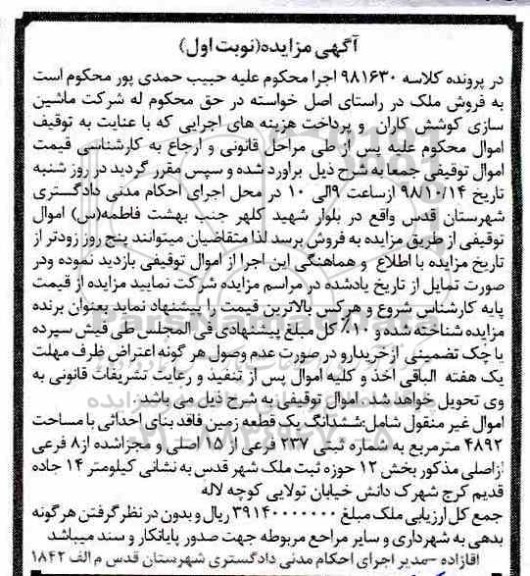 آگهی مزایده(نوبت اول)
در پرونده کلاسه ۹۸۱۶۳۰ اجرا محکوم علیه حبیب حمدی پور محکوم است
به فروش ملک در راستای اصل خواسته در حق محکوم له شرکت ماشین
سازی کوشش کاران و پرداخت هزینه های اجرایی که با عنایت به توقیف
اموال محکوم علیه پس از طی مراحل قانونی و ارجاع به کارشناسی قیمت
اموال توقیفی جمعا به شرح ذیل براورد شده و سپس مقرر گردید در روز شنبه
تاریخ ۹۸/۱۰/۱۴ ازساعت ۹الی ۱۰ در محل اجرای احکام مدنی دادگستری
شهرستان قدس واقع در بلوار شهید کلهر جنب بهشت فاطمه(س) اموال
توقیفی از طریق مزایده به فروش برسد لذا متقاضیان میتوانند پنج روز زودتر از
تاریخ مزایده با اطلاع و هماهنگی این اجرا از اموال توقیفی بازدید نموده ودر
صورت تمایل از تاریخ یادشده در مراسم مزایده شرکت نمایید مزایده از قیمت
پایه کارشناس شروع و هرکس بالاترین قیمت را پیشنهاد نماید بعنوان برنده
مزایده شناخته شده و ۱۰٪ کل مبلغ پیشنهادی فی المجلس طی فیش سپرده
یا چک تضمینی ازخریدارو در صورت عدم وصول هر گونه اعتراض ظرف مهلت
یک هفته الباقی اخذ و کلیه اموال پس از تنفیذ و رعایت تشریفات قانونی به
وی تحویل خواهد شد. اموال توقیفی به شرح ذیل می باشد
اموال غیر منقول شامل:ششدانگ یک قطعه زمین فاقد بنای احداثی با مساحت
۴۸۹۲ مترمربع به شماره ثبتی ۲۳۷ فرعی از ۱۵ اصلی و مجزاشده از۸ فرعی
ازاصلی مذکور بخش ۱۲ حوزه ثبت ملک شهر قدس به نشانی کیلومتر ۱۴ جاده
قدیم کرج شهرک دانش خیابان تولایی کوچه لاله
جمع کل ارزیابی ملک مبلغ ۳۹۱۴۰۰۰۰۰۰۰ ریال و بدون در نظر گرفتن هرگونه
بدهی به شهرداری و سایر مراجع مربوطه جهت صدور پایانکار و سند میباشد
اقازاده –مدیر اجرای احکام مدنی دادگستری شهرستان قدس م الف ۱۸۴۲